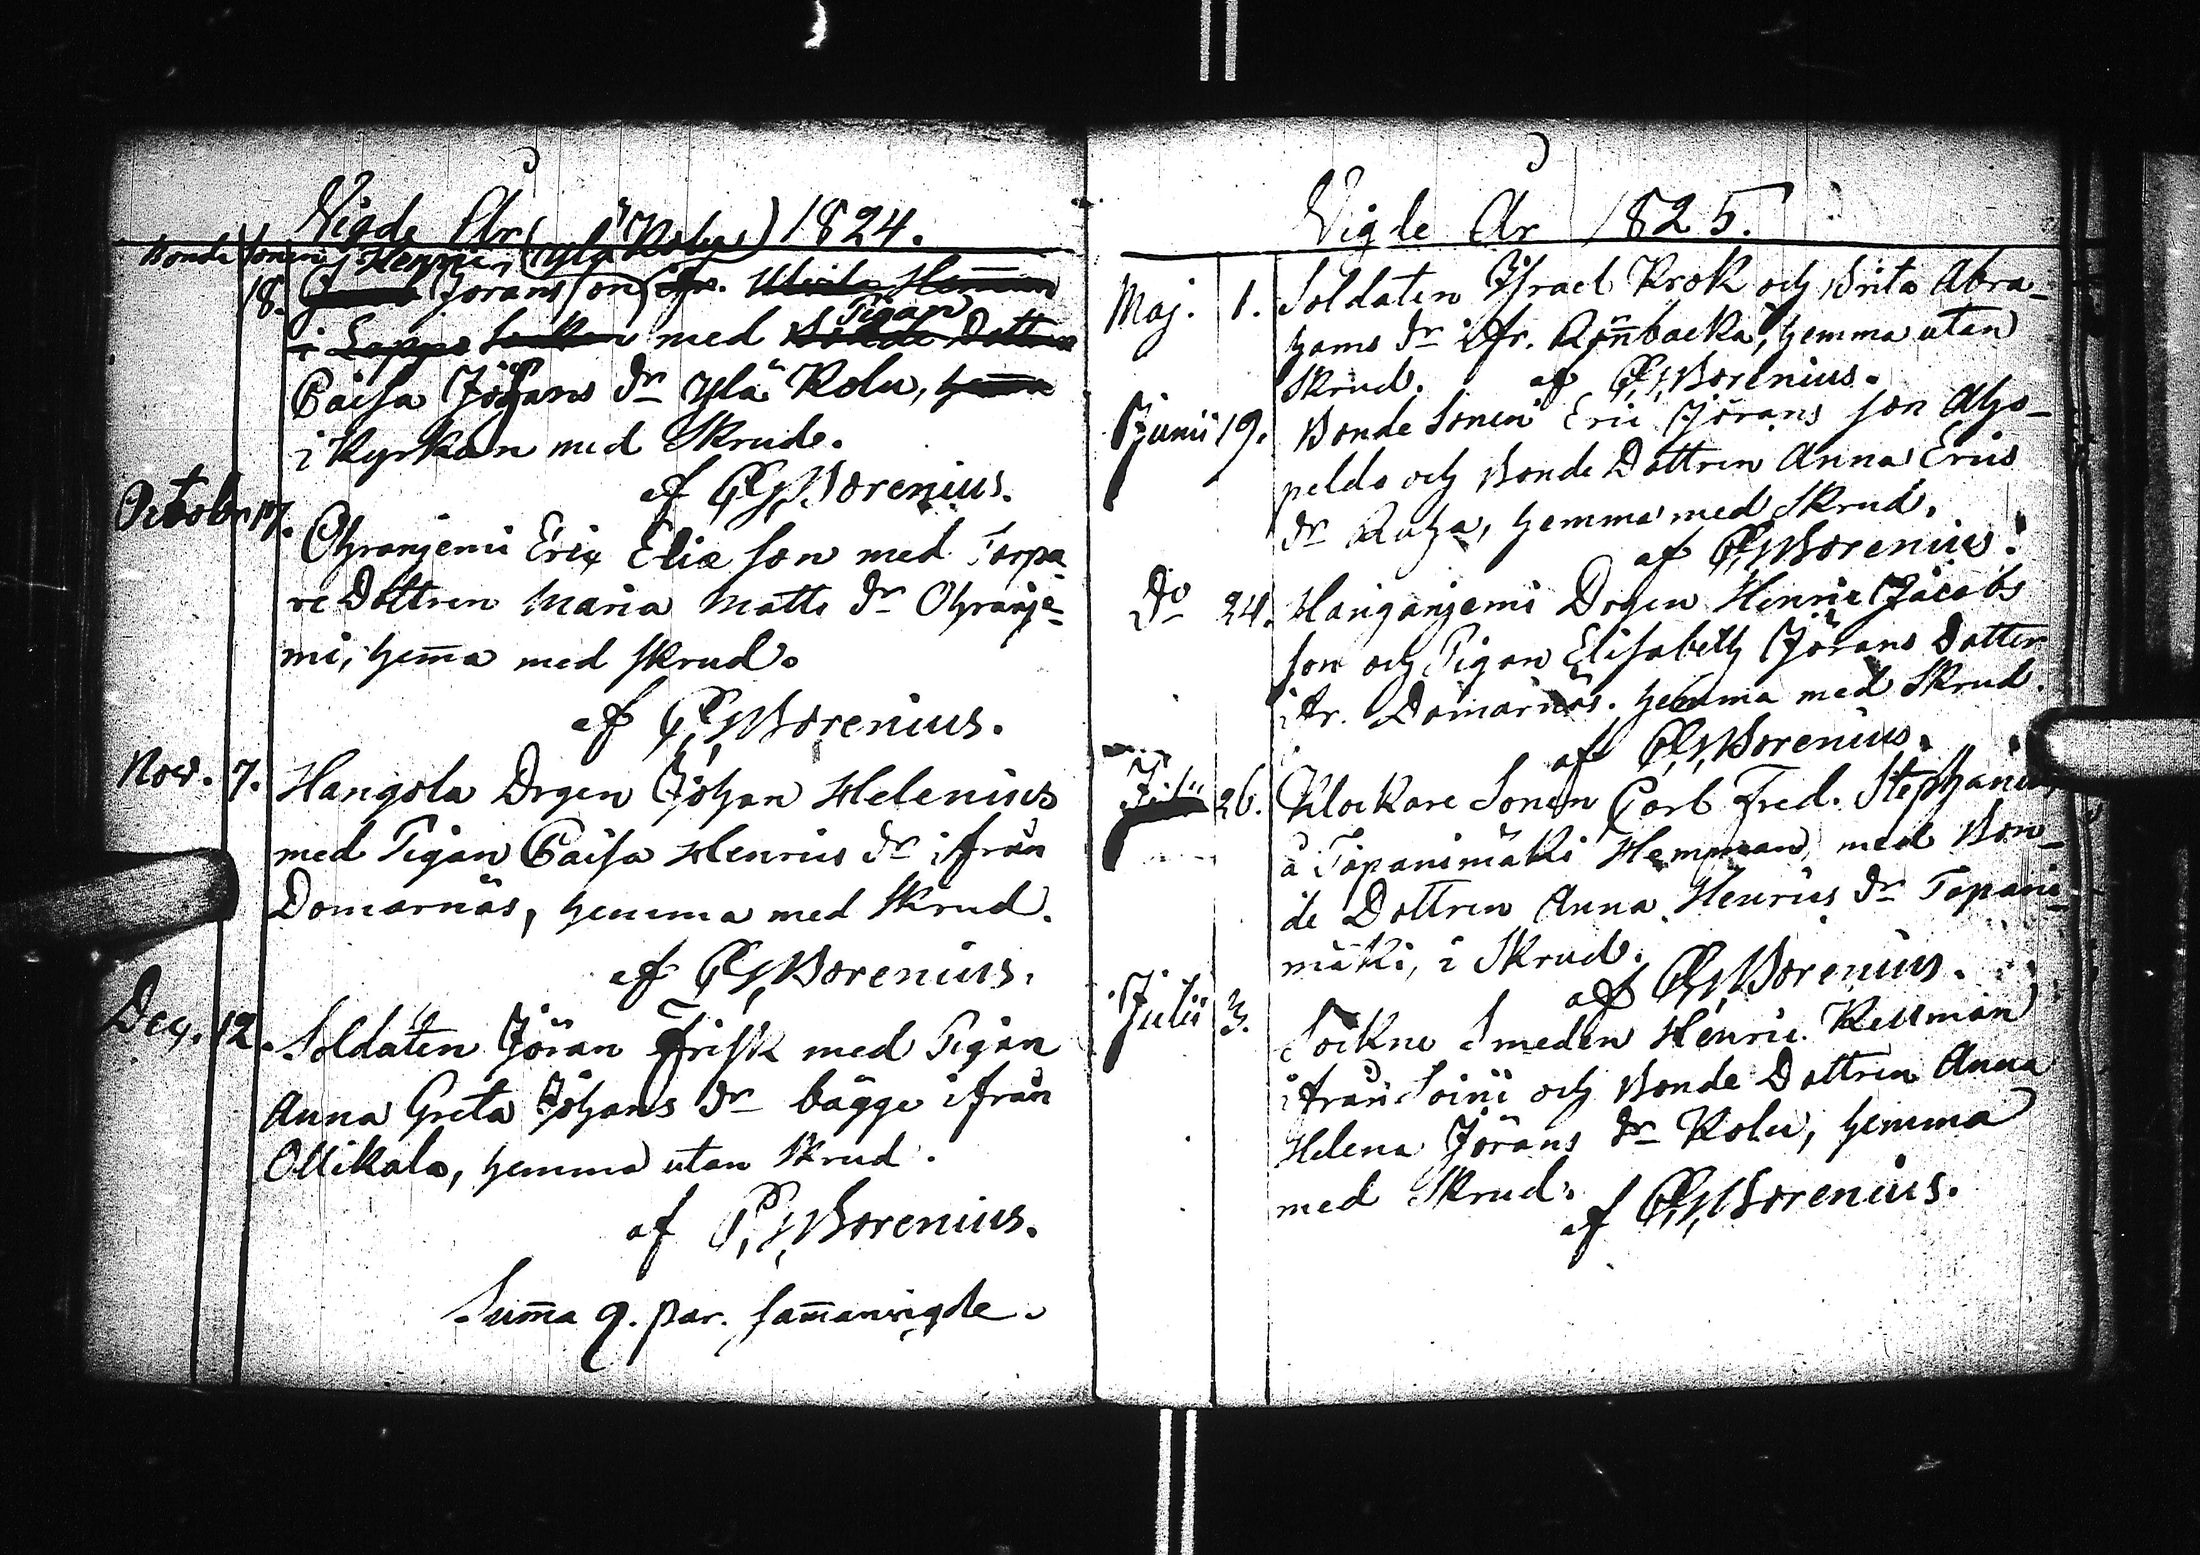 Vigde År 1824.
Bonde Sonen Henric (Ylä Kolu)
18. Jörans son ifr. Hemman
i Lappo Socken med Bonde Dottren Pigan
Caisa Johans dr Ylä Kolu, hemma
i Kyrkan med Skrud.
af C. G. Borenius.
October 17. Ohranjemi Eric Eliæ son med Torpa
re Dottren Maria Matts dr Ohranje-
mi, hem̄a med skrud.
af C. G. Borenius.
Nov. 7. Hangola Drgen Johan Helenius
med Pigan Caisa Henrics dr ifrån
Domarnäs, hemma med Skrud.
af C. G. Borenius.
Dec. 12. Soldaten Jöran Frisk med Pigan
Anna Greta Johans dr bägge ifrån
Ollikala, hemma utan Skrud.
af C. G. Borenius.
Sum̄a 9. par. sam̄anvigde.
Vigde År 1825.
Maj. 1. Soldaten Israel Krok och Brita Abra-
hams dr ifr. Rön̄backa, hemma utan
Skrud. af C. G. Borenius.
Junii 19. Bonde Sonen Eric Jörans son Aho-
peldo och Bonde Dottren Anna Erics
dr Auha, hemma med Skrud.
af C. G. Borenius.
Do 24. Hanganjemi Drgen Henric Jacobs
son och Pigan Elisabeth Jörans Dotter
ifr. Domarnäs. hemma med Skrud.
af C. G. Borenius.
26. Klockare Sonen Carl Fred. Stephanius
å Tapanimäki Hemman, med Bon-
de Dottren Anna Henrics dr Tapani-
mäki, i Skrud.
af C. G. Borenius.
Julii 3. Sockne Smeden Henric Kellman
ifrån Soini och Bonde Dottren Anna
Helena Jörans dr Kolu, hemma
med Skrud.
af C. G. Borenius.